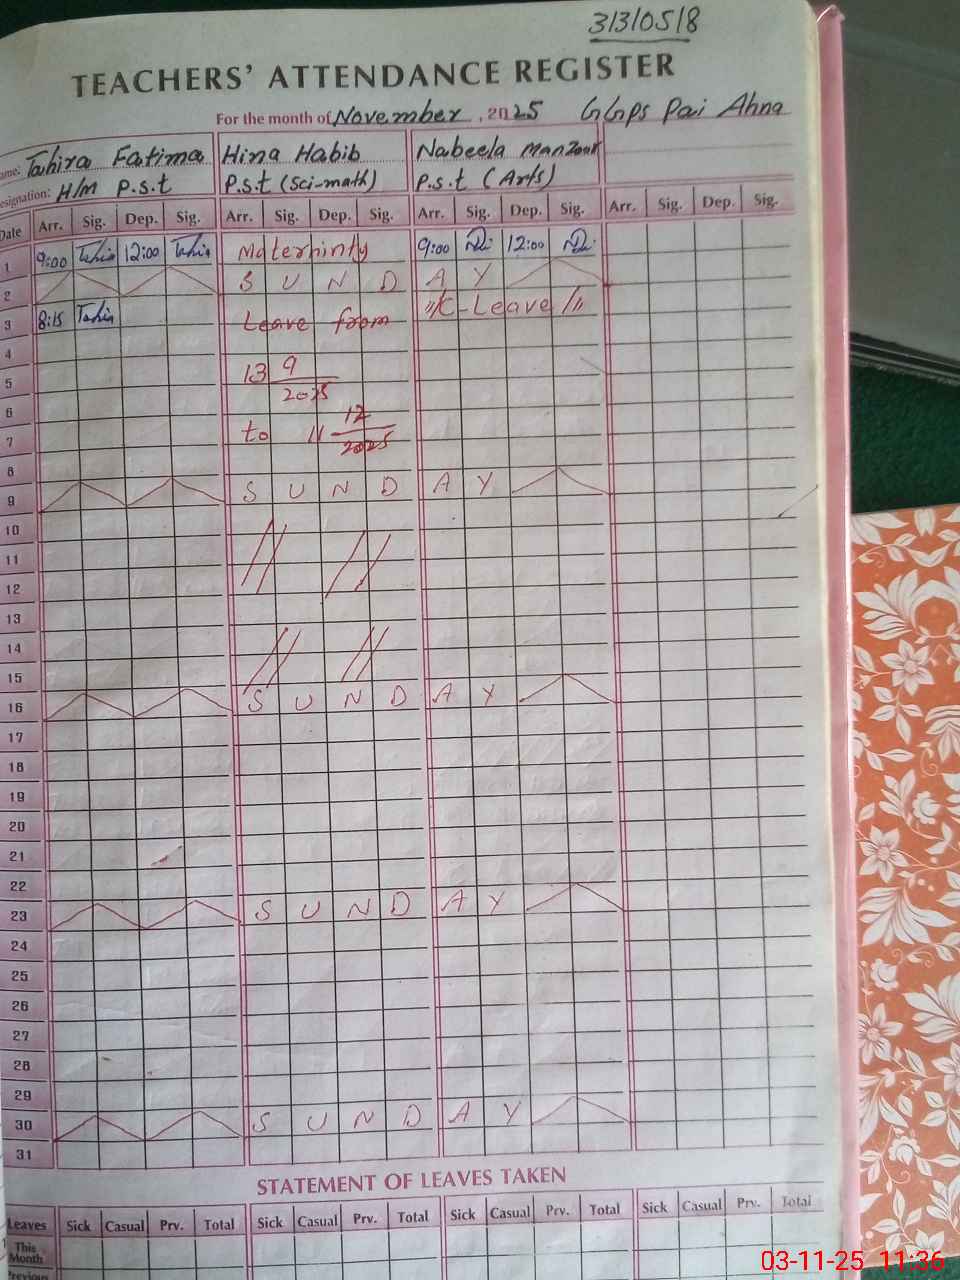 31310518
TEACHERS' ATTENDANCE REGISTER
For the month of November, 2025 GGPS Pai Ahna
Name: Tahira Fatima Hina Habib Nabeela Manzoor
Designation: H/M P.s.t P.s.t (Sci-math) P.s.t (Arts)
Date Arr. Sig. Dep. Sig. Arr. Sig. Dep. Sig. Arr. Sig. Dep. Sig. Arr. Sig. Dep. Sig.
1 9:00 12:00 Materninty 9:00 12:00
2 S U N D A Y
3 8:15 Leave from Leave
4
5 13 9
2025
6
7 to 11 12
2025
8
9 S U N D A Y
10
11
12
13
14
15
16 S U N D A Y
17
18
19
20
21
22
23 S U N D A Y
24
25
26
27
28
29
30 S U N D A Y
31
STATEMENT OF LEAVES TAKEN
Leaves Sick Casual Prv. Total Sick Casual Prv. Total Sick Casual Prv. Total Sick Casual Prv. Total
This
Month
Previous
03-11-25 11:36